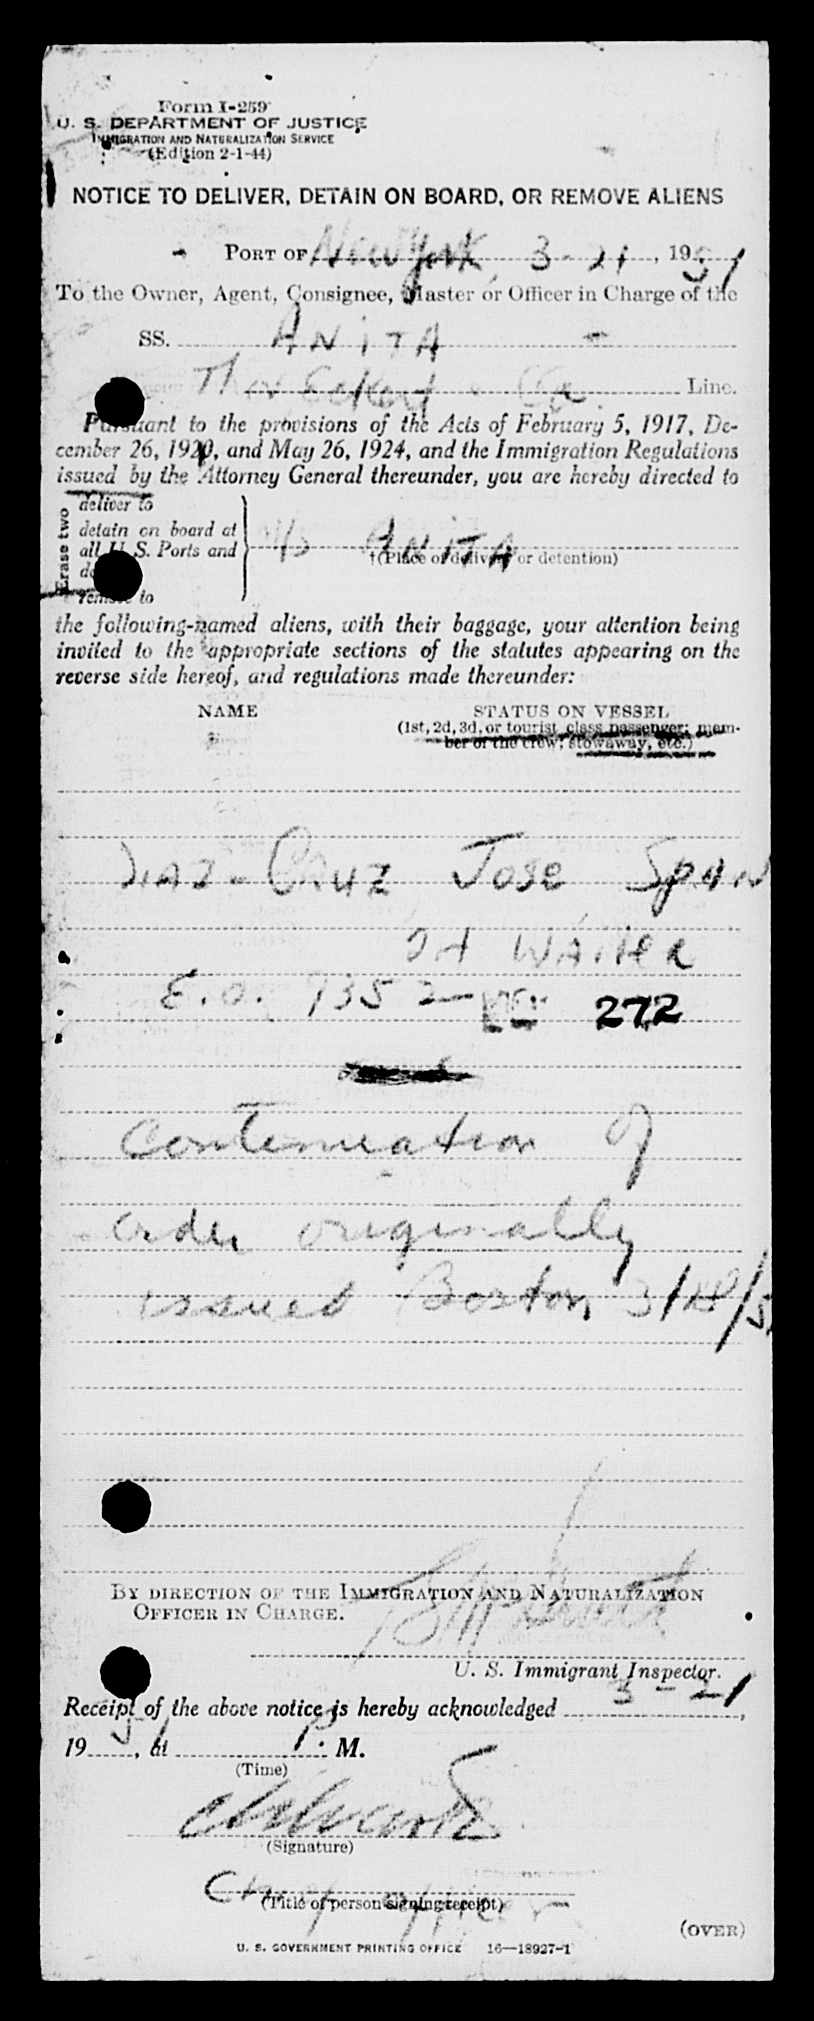 Form I-259
U. S. DEPARTMENT OF JUSTICE
IMMIGRATION AND NATURALIZATION SERVICE
(Edition 2-1-44)
NOTICE TO DELIVER, DETAIN ON BOARD, OR REMOVE ALIENS
PORT OF New York, 3-21, 1951
To the Owner, Agent, Consignee, Master or Officer in Charge of the
SS. ANITA
Thor Eckert & Co. Line.
Pursuant to the provisions of the Acts of February 5, 1917, De-
cember 26, 1920, and May 26, 1924, and the Immigration Regulations
issued by the Attorney General thereunder, you are hereby directed to
Erase two
deliver to
detain on board at
all U. S. Ports and
remove to
ANITA
†(Place of delivery or detention)
the following-named aliens, with their baggage, your attention being
invited to the appropriate sections of the statutes appearing on the
reverse side hereof, and regulations made thereunder:
NAME STATUS ON VESSEL
(1st, 2d, 3d, or tourist class passenger; mem-
ber of the crew; stowaway, etc.)
DIAZ-CRUZ Jose Span
WAITER
E.O. 9352 272
Continuation of
order originally
issued Boston 3/18/5
BY DIRECTION OF THE IMMIGRATION AND NATURALIZATION
OFFICER IN CHARGE.
U. S. Immigrant Inspector.
Receipt of the above notice is hereby acknowledged 3-21,
1951, at P. M.
(Time)
(Signature)
Chief Officer
(Title of person signing receipt)
(OVER)
U. S. GOVERNMENT PRINTING OFFICE 16—18927-1